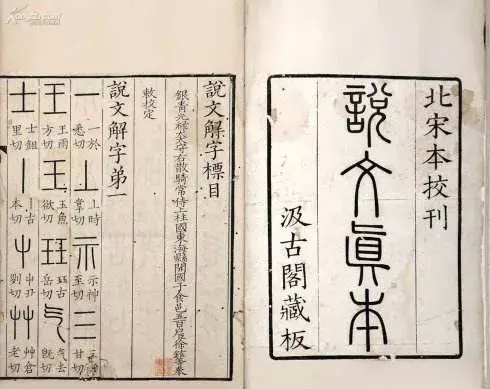 北宋本校刊
說文眞本
汲古閣藏板
說文解字標目
銀青光祿大夫守右散騎常侍上柱國東海縣開國子食邑五百戶徐鉉等奉
敕校定
說文解字第一
一 一於悉切 丄 丄時掌切 示 示神至切 三 甘切
王 王雨方切 玉 玉魚欲切 玨 玨古岳切 气 气去旣切
士 士鉏里切 丨 丨古本切 屮 屮丑列切 艸 艸倉老切